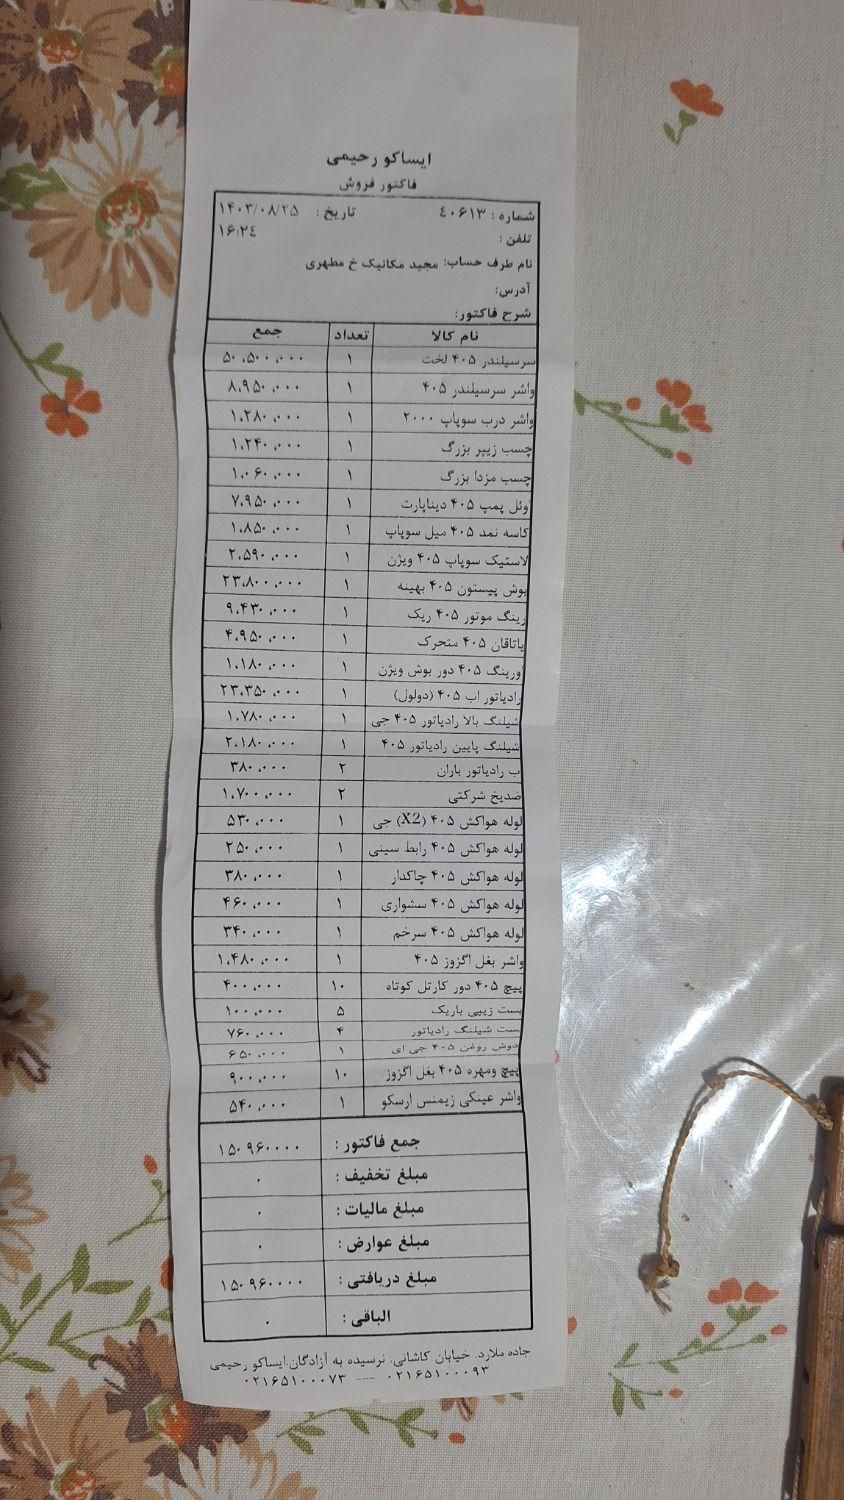 ایساکو رحیمی
فاکتور فروش
شماره : ۴۰۶۱۳ تاریخ : ۱۴۰۳/۰۸/۲۵
تلفن : ۱۶:۲۴
نام طرف حساب: مجید مکانیک خ مطهری
آدرس:
شرح فاکتور:
نام کالا تعداد جمع
سرسیلندر ۴۰۵ لخت ۱ ۵۰،۵۰۰،۰۰۰
واشر سرسیلندر ۴۰۵ ۱ ۸،۹۵۰،۰۰۰
واشر درب سوپاپ ۲۰۰۰ ۱ ۱،۲۸۰،۰۰۰
چسب زیپر بزرگ ۱ ۱،۲۴۰،۰۰۰
چسب مزدا بزرگ ۱ ۱،۰۶۰،۰۰۰
اوئل پمپ ۴۰۵ دیناپارت ۱ ۷،۹۵۰،۰۰۰
کاسه نمد ۴۰۵ میل سوپاپ ۱ ۱،۸۵۰،۰۰۰
لاستیک سوپاپ ۴۰۵ ویژن ۱ ۲،۵۹۰،۰۰۰
بوش پیستون ۴۰۵ بهینه ۱ ۲۳،۸۰۰،۰۰۰
رینگ موتور ۴۰۵ ریک ۱ ۹،۴۳۰،۰۰۰
یاتاقان ۴۰۵ متحرک ۱ ۴،۹۵۰،۰۰۰
اورینگ ۴۰۵ دور بوش ویژن ۱ ۱،۱۸۰،۰۰۰
رادیاتور اب ۴۰۵ (دولول) ۱ ۲۳،۳۵۰،۰۰۰
شیلنگ بالا رادیاتور ۴۰۵ جی ۱ ۱،۷۸۰،۰۰۰
شیلنگ پایین رادیاتور ۴۰۵ ۱ ۲،۱۸۰،۰۰۰
ب رادیاتور باران ۲ ۳۸۰،۰۰۰
ضدیخ شرکتی ۲ ۱،۷۰۰،۰۰۰
لوله هواکش ۴۰۵ (X2) جی ۱ ۵۳۰،۰۰۰
لوله هواکش ۴۰۵ رابط سینی ۱ ۲۵۰،۰۰۰
لوله هواکش ۴۰۵ چاکدار ۱ ۳۸۰،۰۰۰
لوله هواکش ۴۰۵ سشواری ۱ ۴۶۰،۰۰۰
لوله هواکش ۴۰۵ سرخم ۱ ۳۴۰،۰۰۰
واشر بغل اگزوز ۴۰۵ ۱ ۱،۴۸۰،۰۰۰
پیچ ۴۰۵ دور کارتل کوتاه ۱۰ ۴۰۰،۰۰۰
بست زیپی باریک ۵ ۱۰۰،۰۰۰
بست شیلنگ رادیاتور ۴ ۷۶۰،۰۰۰
روغن ۴۰۵ جی ای ۱ ۶۵۰،۰۰۰
پیچ ومهره ۴۰۵ بغل اگزوز ۱۰ ۹۰۰،۰۰۰
واشر عینکی زیمنس ارسکو ۱ ۵۴۰،۰۰۰
جمع فاکتور : ۱۵۰۹۶۰۰۰۰
مبلغ تخفیف : ۰
مبلغ مالیات : ۰
مبلغ عوارض : ۰
مبلغ دریافتی : ۱۵۰۹۶۰۰۰۰
الباقی : ۰
جاده ملارد، خیابان کاشانی، نرسیده به آزادگان،ایساکو رحیمی
۰۲۱۶۵۱۰۰۰۹۳ --- ۰۲۱۶۵۱۰۰۰۷۳